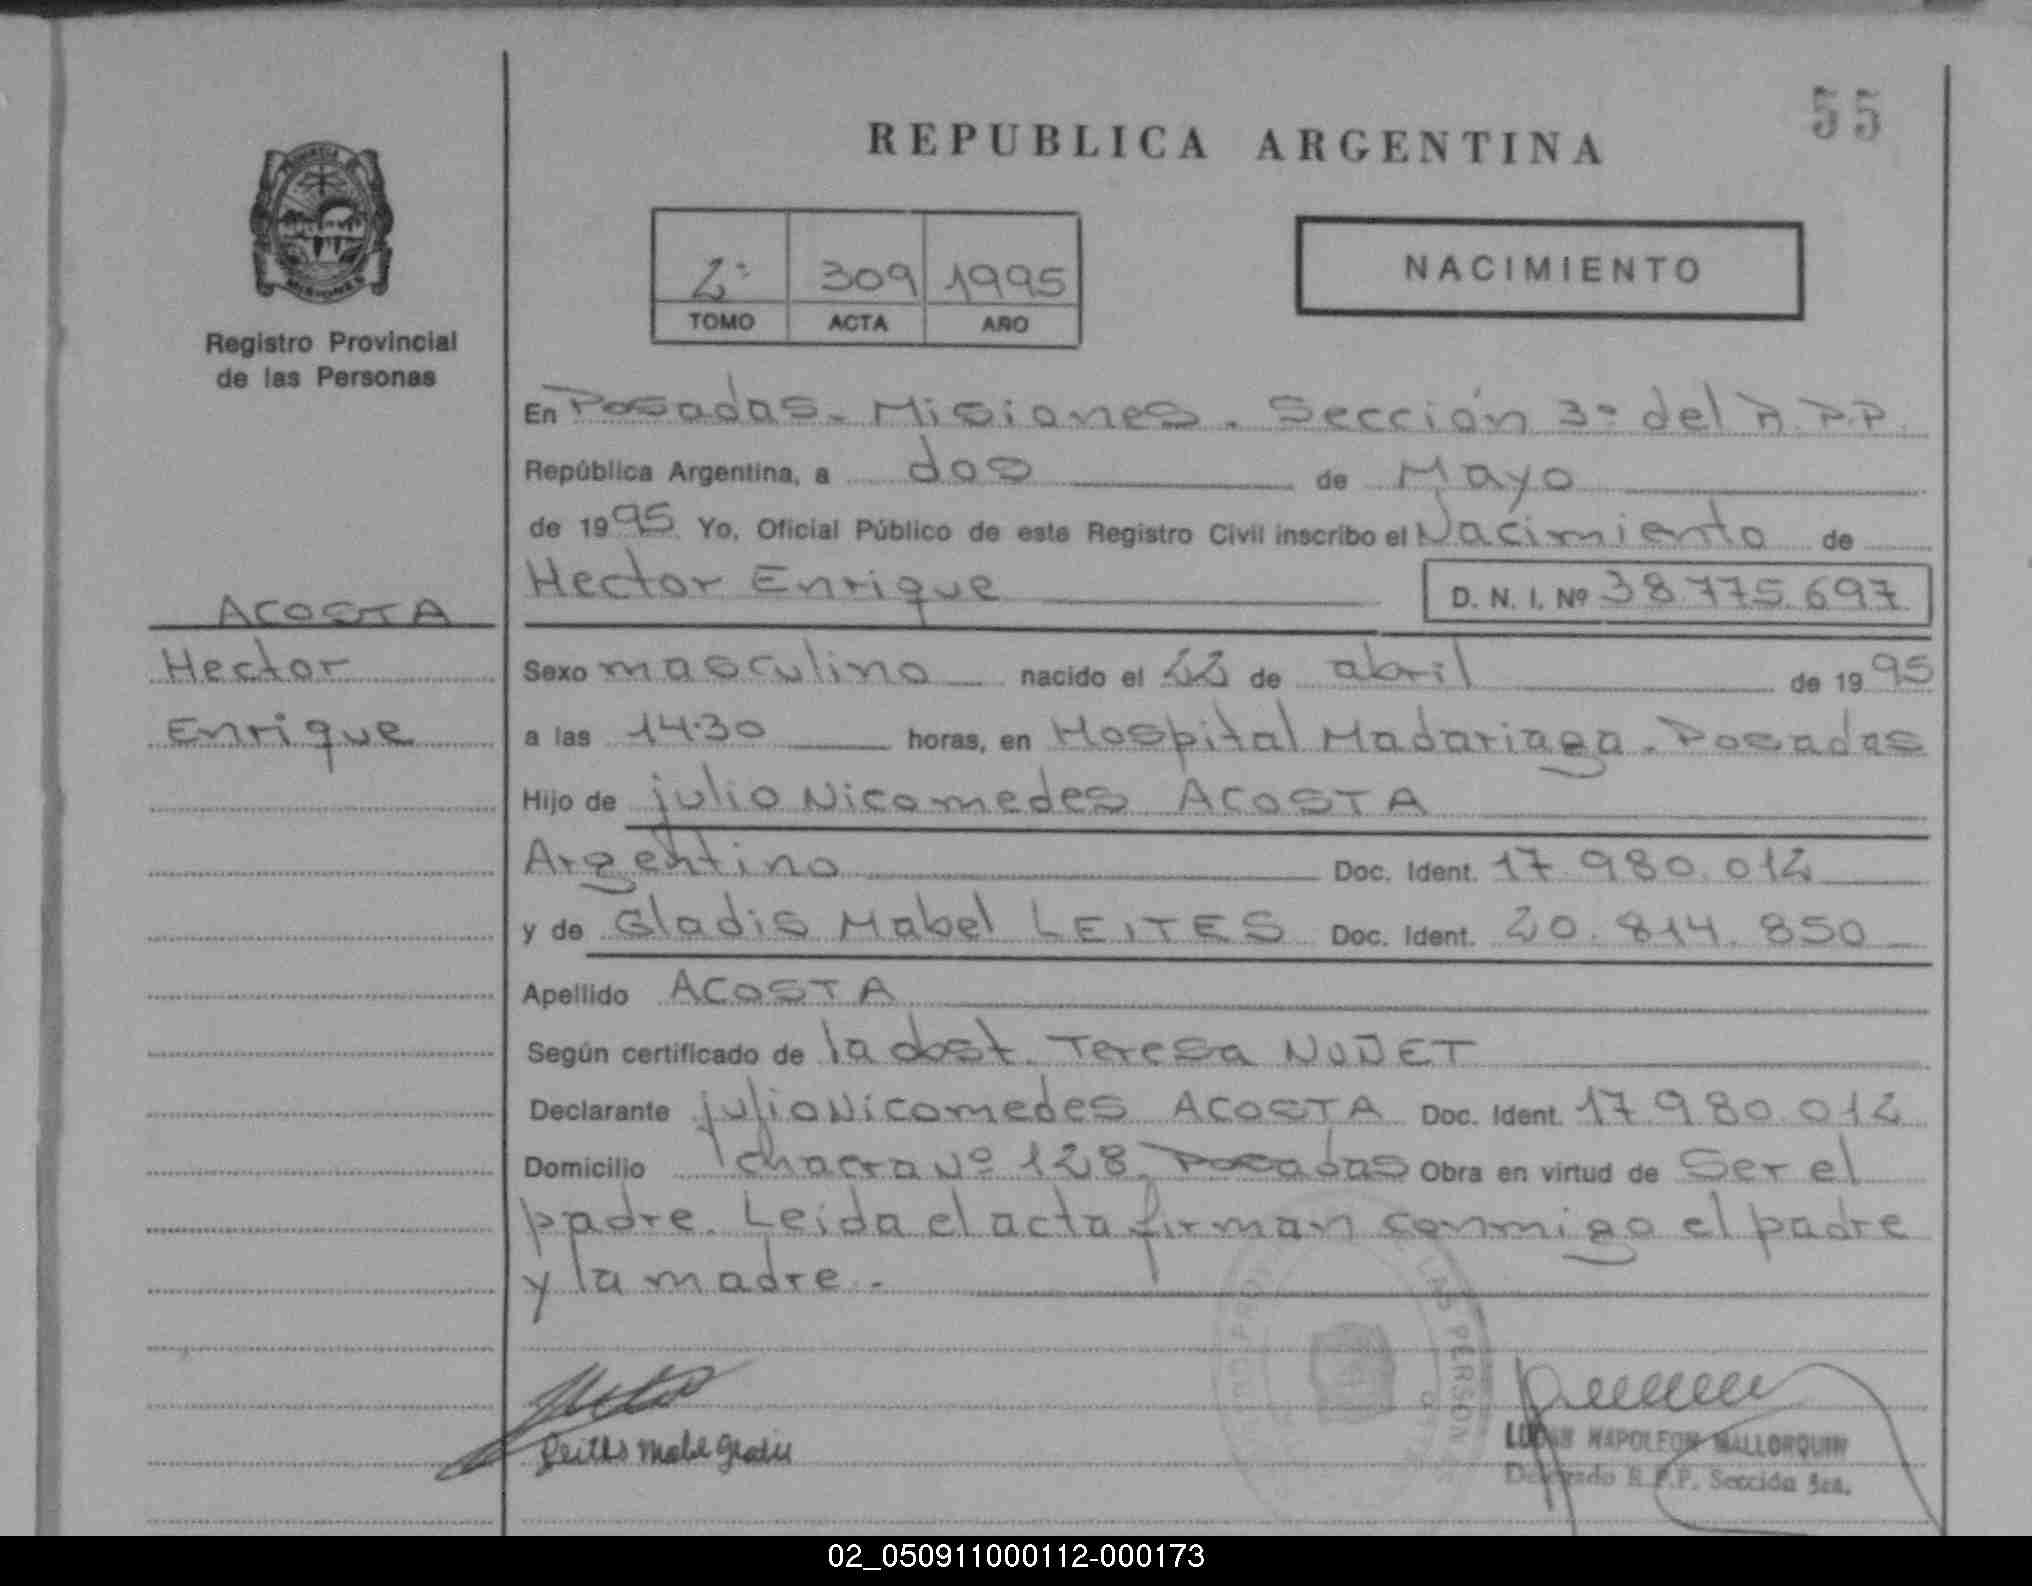 55
REPUBLICA ARGENTINA
MISIONES
Registro Provincial
de las Personas
2º 309 1995
TOMO ACTA AÑO
NACIMIENTO
En Posadas - Misiones. Sección 3º del R.P.P.
República Argentina, a dos de Mayo
de 1995 Yo, Oficial Público de este Registro Civil inscribo el Nacimiento de
Hector Enrique D. N. I. Nº 38.775.697
ACOSTA
Hector
Enrique
Sexo masculino nacido el 22 de abril de 1995
a las 14.30 horas, en Hospital Madariaga. Posadas
Hijo de julio Nicomedes ACOSTA
Argentino Doc. Ident. 17.980.012
y de Gladis Mabel LEITES Doc. Ident. 20.814.850
Apellido ACOSTA
Según certificado de la obst. Teresa
Declarante julio Nicomedes ACOSTA Doc. Ident. 17.980.012
Domicilio chacra Nº 128, Posadas Obra en virtud de Ser el
padre. Leida el acta firman conmigo el padre
y la madre.-
LAS PERSONAS
Leites Mabel Gladis
LUCAS NAPOLEON MALLORQUIN
Delegado R.P.P. Sección 3ra.
02_050911000112-000173